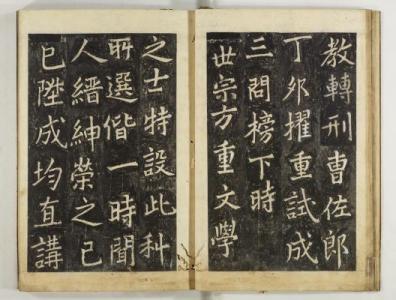 教轉刑曹佐郎
丁夘擢重試成
三問榜下時
世宗方重文學
之士特設此科
所選偕一時聞
人縉紳榮之已
巳陞成均直講